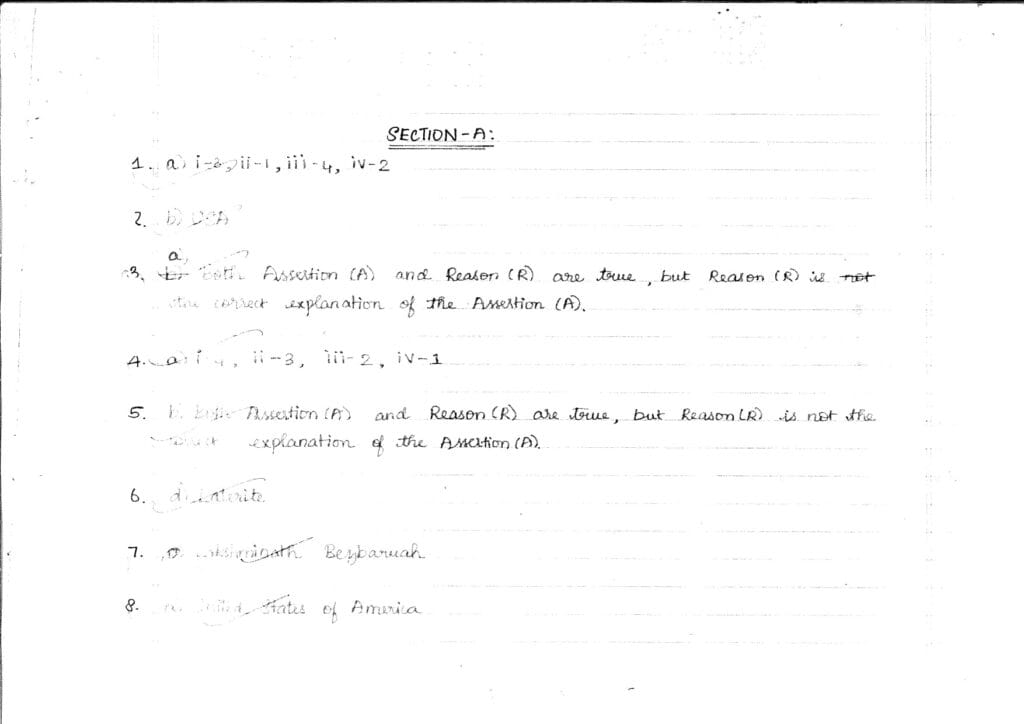 SECTION-A:
1. a) i-3, ii-1, iii-4, iv-2
2. b)
a,
3. Both Assertion (A) and Reason (R) are true, but Reason (R) is not
the correct explanation of the Assertion (A).
4. a) i-4, ii-3, iii-2, iv-1
5. Both Assertion (A) and Reason (R) are true, but Reason (R) is not the
correct explanation of the Assertion (A).
6. d. Laterite
7. Bezbaruah
8. United States of America